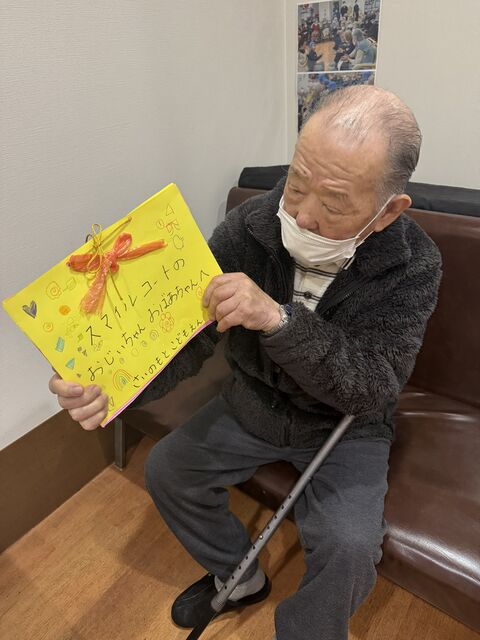 スマイルコートの
おじいちゃん おばあちゃんへ
さいのもとこどもえん